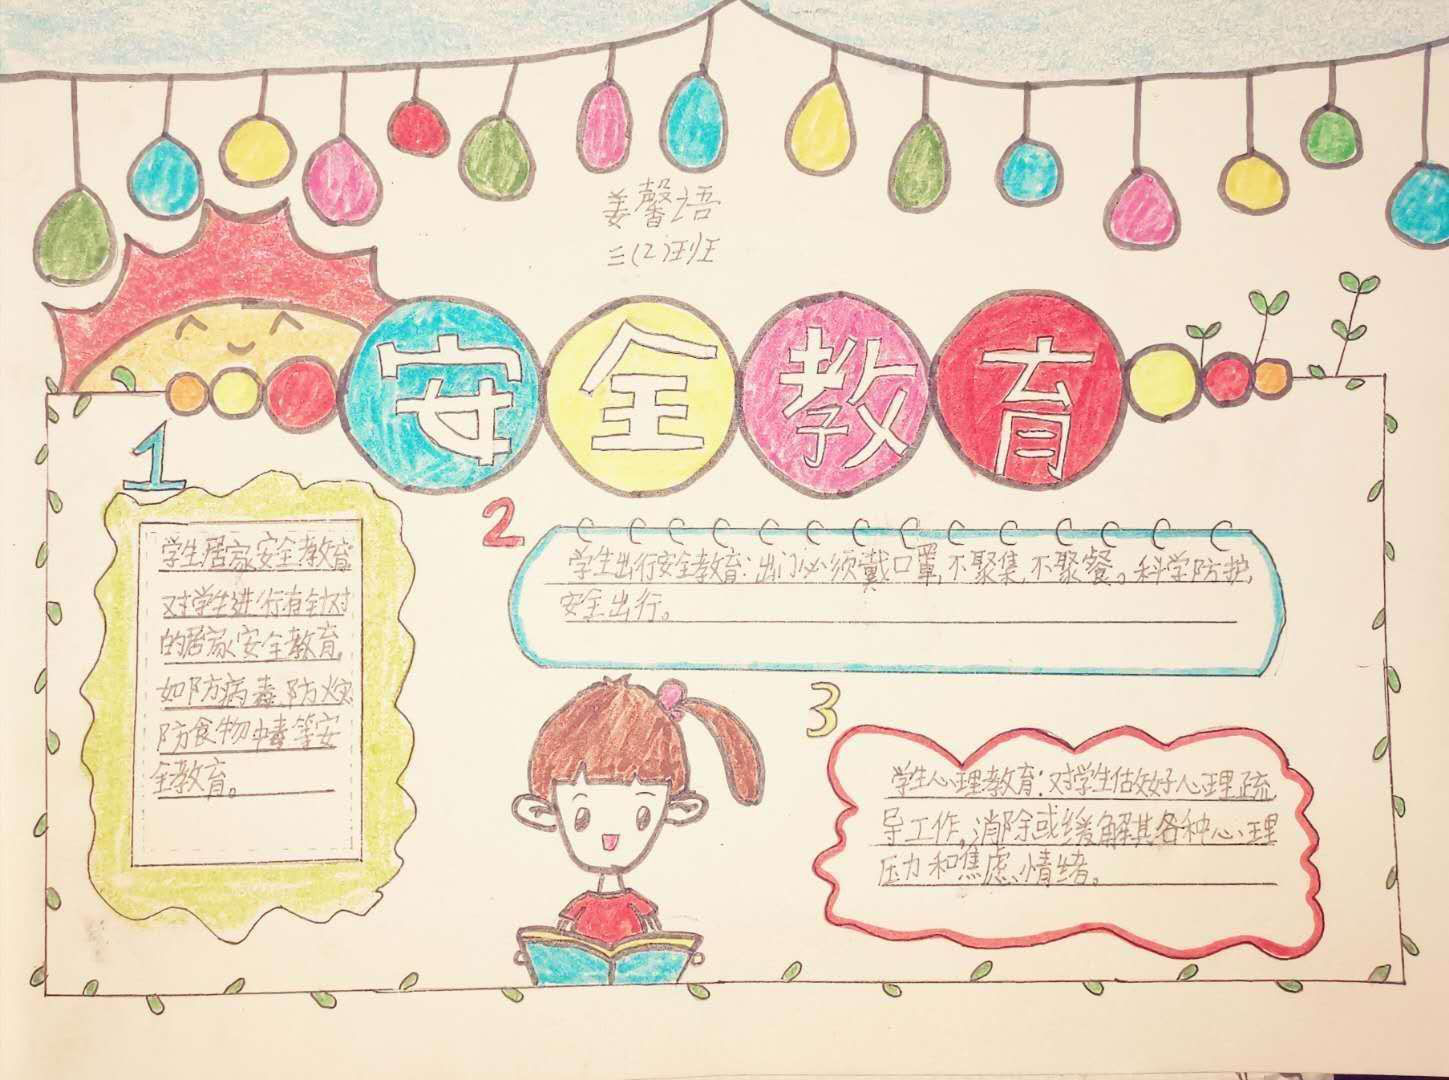 姜馨语
三(2)班
安全教育
1
学生居家安全教育
对学生进行有针对
的居家安全教育,
如防病毒、防火灾
防食物中毒等安
全教育。
2
学生出行安全教育:出门必须戴口罩,不聚集,不聚餐。科学防护,
安全出行。
3
学生心理教育:对学生做好心理疏
导工作,消除或缓解其各种心理
压力和焦虑情绪。